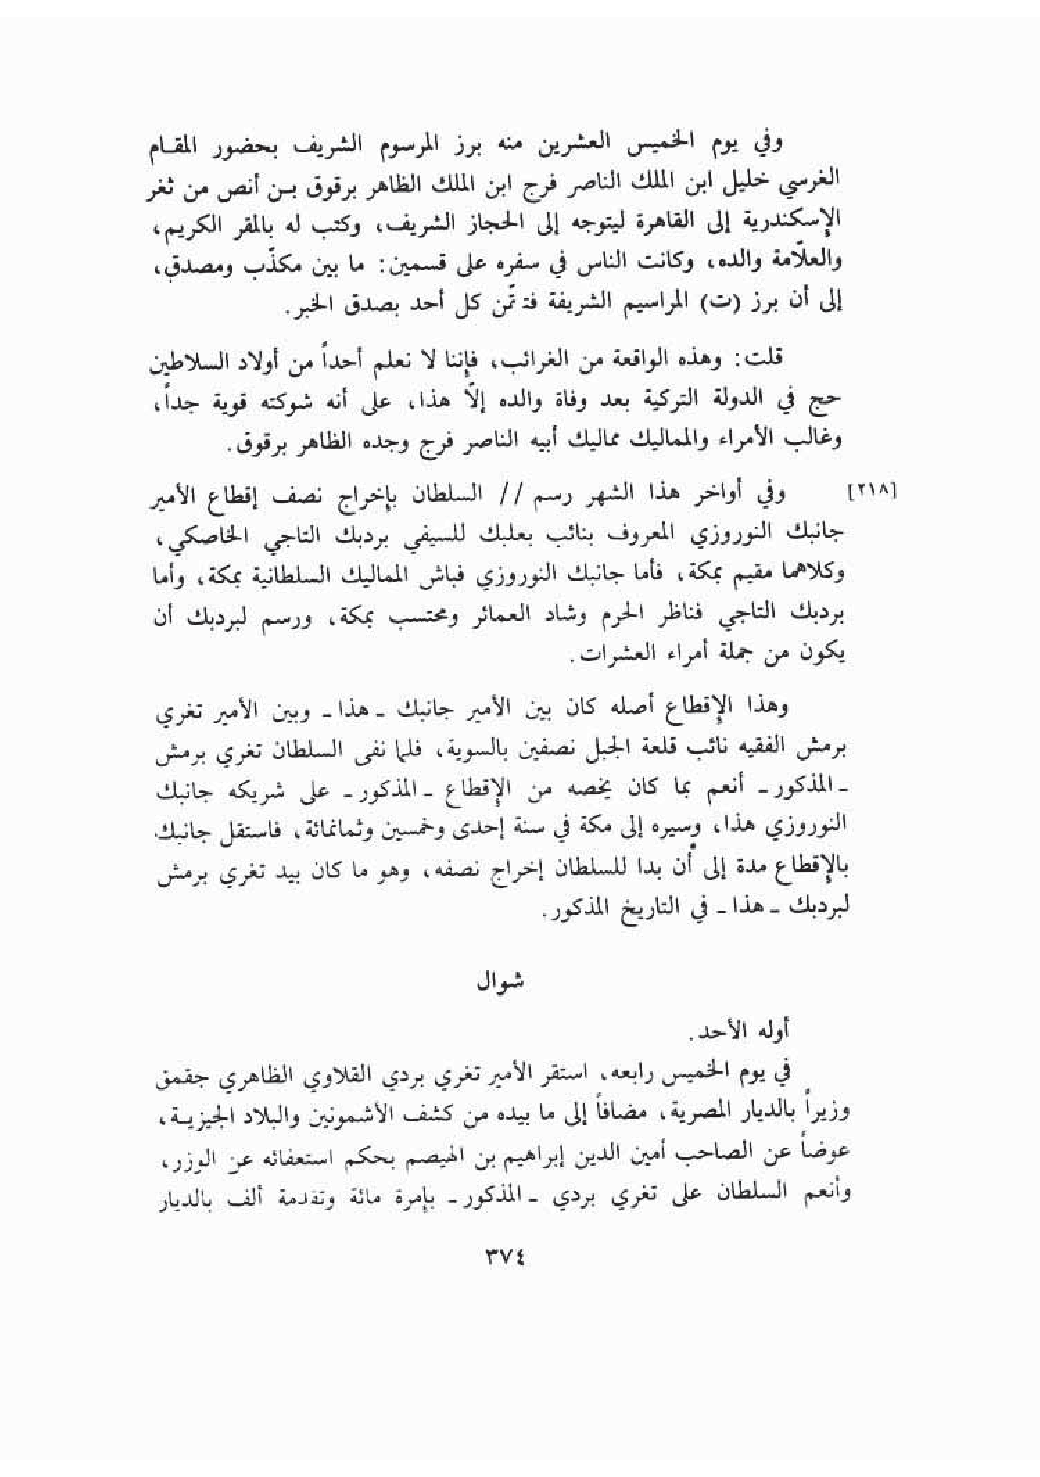 وفي يوم الخميس العشرين منه برز المرسوم الشريف بحضور المقام
الغرسي خليل ابن الملك الناصر فرج ابن الملك الظاهر برقوق بن أنص من ثغر
الإسكندرية إلى القاهرة ليتوجه إلى الحجاز الشريف، وكتب له بالمقر الكريم،
والعلّامة والده، وكانت الناس في سفره على قسمين: ما بين مكذّب ومصدق،
إلى أن برز (ت) المراسيم الشريفة فتمّن كل أحد بصدق الخبر.
قلت: وهذه الواقعة من الغرائب، فإننا لا نعلم أحداً من أولاد السلاطين
حج في الدولة التركية بعد وفاة والده إلّا هذا، على أنه شوكته قوية جداً،
وغالب الأمراء والمماليك مماليك أبيه الناصر فرج وجده الظاهر برقوق.
[٢١٨] وفي أواخر هذا الشهر رسم // السلطان بإخراج نصف إقطاع الأمير
جانبك النوروزي المعروف بنائب بعلبك للسيفي بردبك التاجي الخاصكي،
وكلاهما مقيم بمكة، فأما جانبك النوروزي فباش المماليك السلطانية بمكة، وأما
بردبك التاجي فناظر الحرم وشاد العمائر ومحتسب بمكة، ورسم لبردبك أن
يكون من جملة أمراء العشرات.
وهذا الإقطاع أصله كان بين الأمير جانبك ـ هذا ـ وبين الأمير تغري
برمش الفقيه نائب قلعة الجبل نصفين بالسوية، فلما نفى السلطان تغري برمش
ـ المذكور ـ أنعم بما كان يخصه من الإقطاع ـ المذكور ـ على شريكه جانبك
النوروزي هذا، وسيره إلى مكة في سنة إحدى وخمسين وثمانمائة، فاستقل جانبك
بالإقطاع مدة إلى أن بدا للسلطان إخراج نصفه، وهو ما كان بيد تغري برمش
لبردبك ـ هذا ـ في التاريخ المذكور.
شوال
أوله الأحد.
في يوم الخميس رابعه، استقر الأمير تغري بردي القلاوي الظاهري جقمق
وزيراً بالديار المصرية، مضافاً إلى ما بيده من كشف الأشمونين والبلاد الجيزية،
عوضاً عن الصاحب أمين الدين إبراهيم بن الهيصم بحكم استعفائه عن الوزر،
وأنعم السلطان على تغري بردي ـ المذكور ـ بإمرة مائة وتقدمة ألف بالديار
٣٧٤